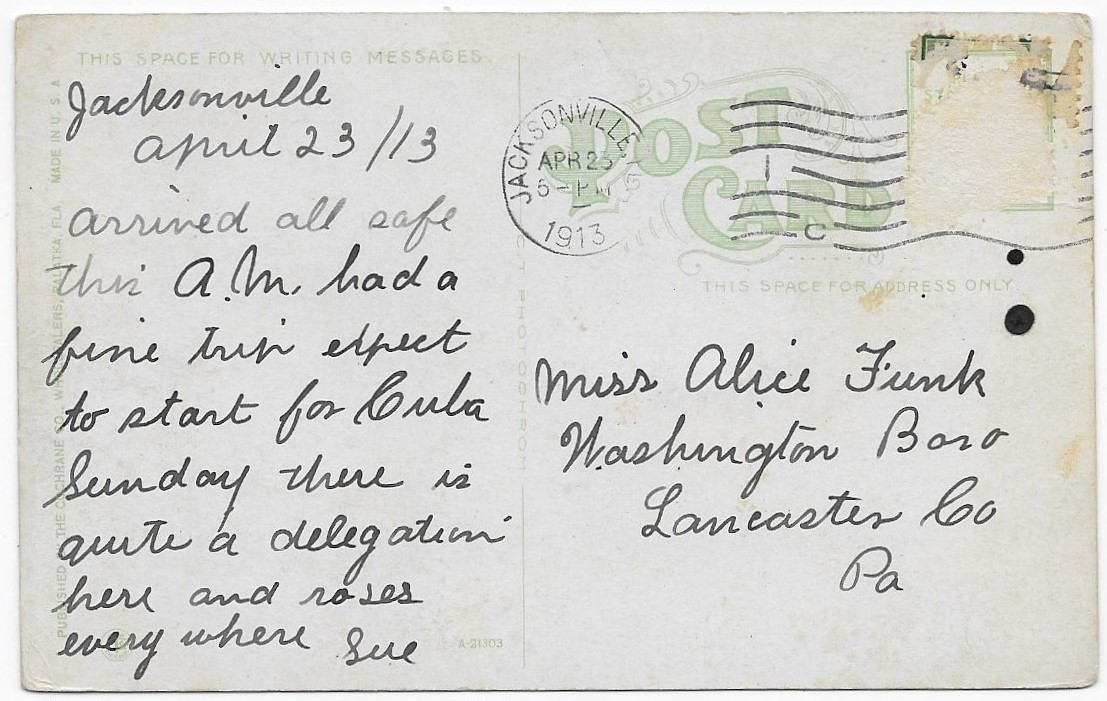 THIS SPACE FOR WRITING MESSAGES
Jacksonville
April 23/13
arrived all safe
this A.M. had a
fine trip expect
to start for Cuba
Sunday there is
quite a delegation
here and roses
every where Sue
PUBLISHED BY THE COCHRANE CO. WHOLESALERS, PALATKA, FLA MADE IN U.S.A
A-21303
POST
CARD
JACKSONVILLE,
APR 23
1913
1
C
THIS SPACE FOR ADDRESS ONLY.
Miss Alice Funk
Washington Boro
Lancaster Co
Pa